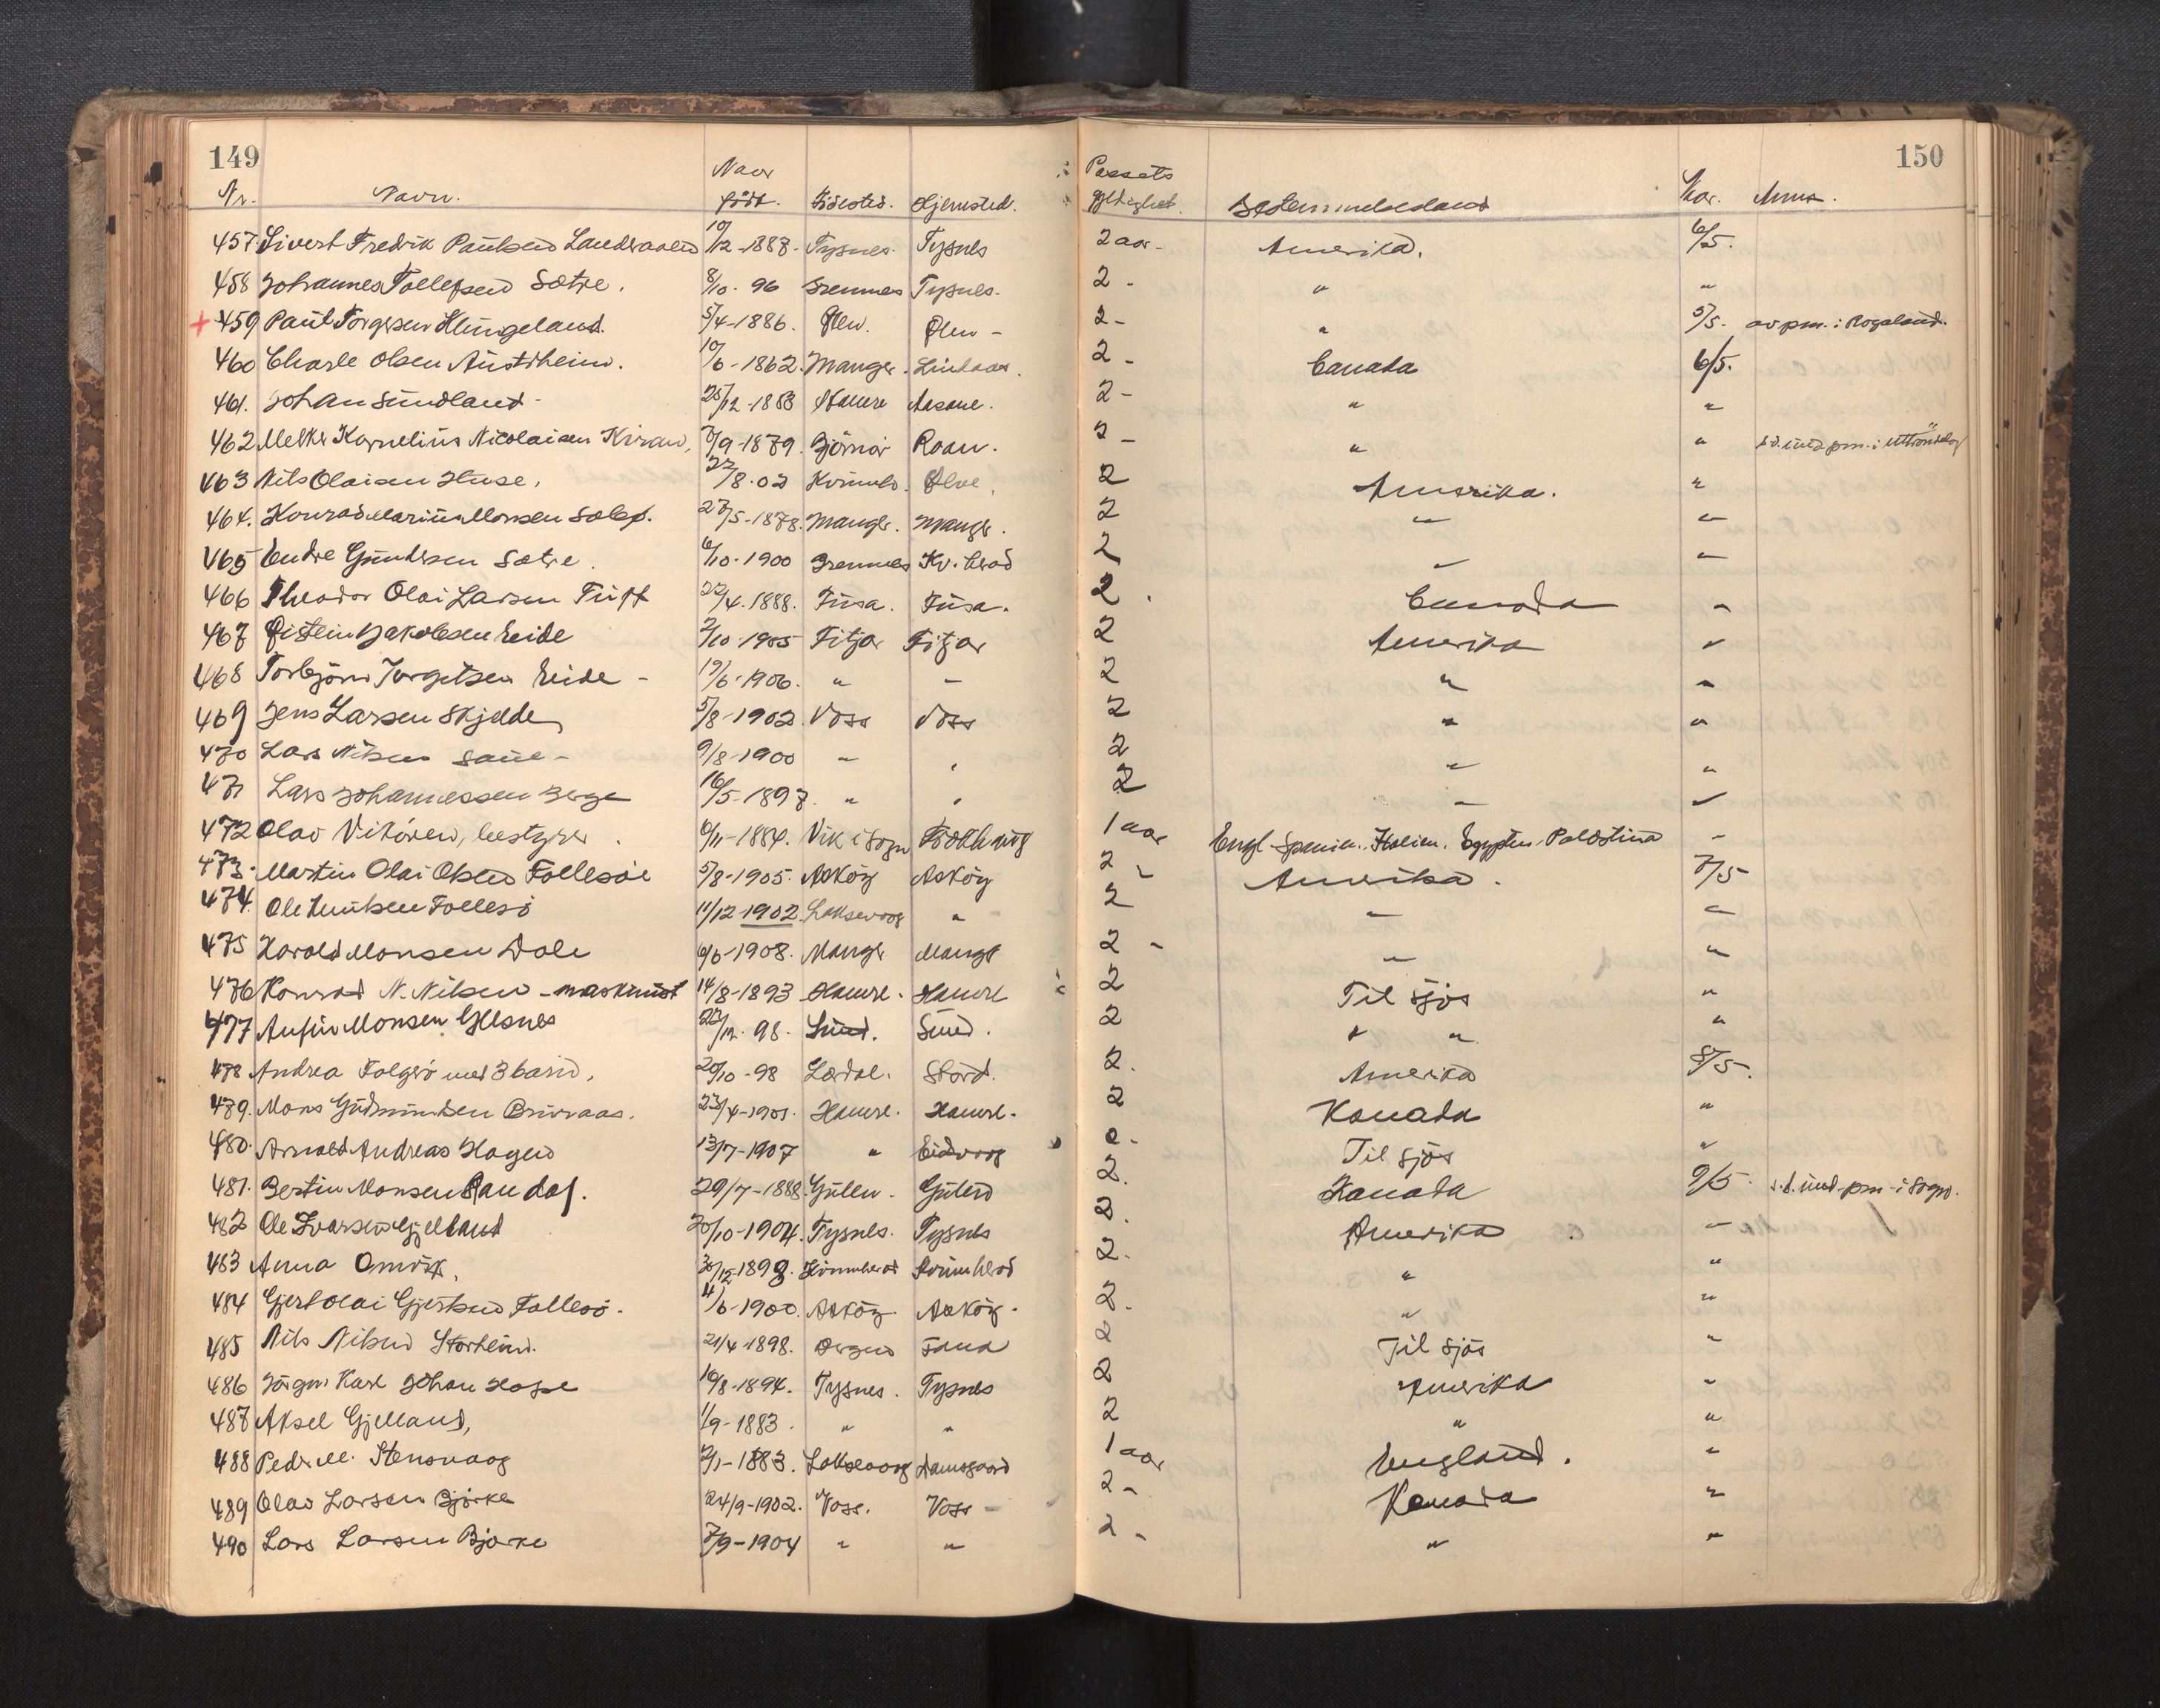 149
150
Nr. Navn. Naar født. Födested. Hjemsted. Passets gyldighet. Bestemmelsesland Kar. Anm.
457 Sivert Fredrik Paulsen Landraaen 10/12-1887. Tysnes. Tysnes 2 aar. Amerika. 6/5.
458 Johannes Tollefsen Sætre. 8/10. 96 Bremnes Tysnes. 2 - " "
+ 459 Paul Torgersen Klungeland. 5/4-1886. Ølen. Ølen - 2 - " 5/5. av pm. i Rogaland.
460 Charle Olsen Austrheim. 10/6-1862. Manger. Lindaas. 2 - Canada 6/5.
461. Johan Sundland - 25/12-1883 Hamre Aasane. 2 - " "
462 Kornelius Nicolaisen 7/9-1879. Björnör Roan. 2 - " "
463 Nils Olaisen Huse. 22/8.02 Kvinnh. Ølve. 2 Amerika. "
464. Konrad Marius Monsen Sæle. 27/5-1878. Manger. Manger. 2 " "
465 Endre Gundersen Sætre. 6/10-1900 Bremnes Kv. herad 2 " "
466 Theodor Olai Larsen Tuft 22/4.1888. Fusa. Fusa. 2. Canada "
467 Øistein Jakobsen Eide 2/10-1905 Fitjar Fitjar 2 Amerika "
468 Torbjörn Torgilsen Eide - 19/6-1906. " " 2 " "
469 Jens Larsen Skjelde 5/8-1902. Voss Voss 2 " "
470 Lars Nilsen Saue - 9/8-1900 " " 2 " "
471 Lars Johannessen Berge 16/5-1897. " " 2 " "
472 Olav Vikören, bestyrer. 6/11-1884. Vik i Sogn 1 aar Engl. Spanien. Italien. Egypten. Palæstina "
473. Martin Olai Olsen Follesöe 5/8-1905. Asköy Asköy 2 - Amerika. 7/5
474. Ole Knutsen Follesö 11/12-1902. Laksevaag " 2 " "
475 Harald Monsen Dale 6/6-1908. Manger Manger 2 - " "
476 Konrad N. Nilsen - maskinist 14/8-1893 Hamre. Hamre 2 Til sjös "
477 Anfin Monsen Glesnes 22/12. 98. Sund. Sund. 2 " " "
478 Andrea Folgerö med 3 barn. 20/10-98 Lærdal. Stord. 2. Amerika 8/5.
479. Mons Gudmundsen Bruraas. 23/4-1901. Hamre. Hamre. 2 Kanada "
480. Arnold Andreas Hagen 13/7-1907 " Eidsvaag 2. Til sjös "
481. Bertin Monsen Randal. 29/7-1888. Gulen. Gulen 2. Kanada 9/5. s.d. und. pm. i Sogn.
482 Ole Ivarsen Gjelland 20/10-1904. Tysnes. Tysnes 2. Amerika "
483 Anna Omvik. 30/12-1898. Kvinnherad Kvinnherad 2. " "
484 Gjert Olai Gjertsen Follesö. 4/6-1900. Asköy. Asköy. 2. " "
485 Nils Nilsen Storheim. 21/4-1898. Bergen Fana 2 Til sjös "
486 Jörgen Karl Johan Hope 10/8-1894. Tysnes. Tysnes 2 Amerika "
487 Aksel Gjelland, 1/9-1883. " " 2 " "
488 Peder M. Stensvaag 2/1-1883. Laksevaag Damsgaard 1 aar England. "
489 Olav Larsen Bjørke 24/9-1902. Voss. Voss - 2 - Kanada "
490 Lars Larsen Bjørke 7/9-1904 " " 2 - " "